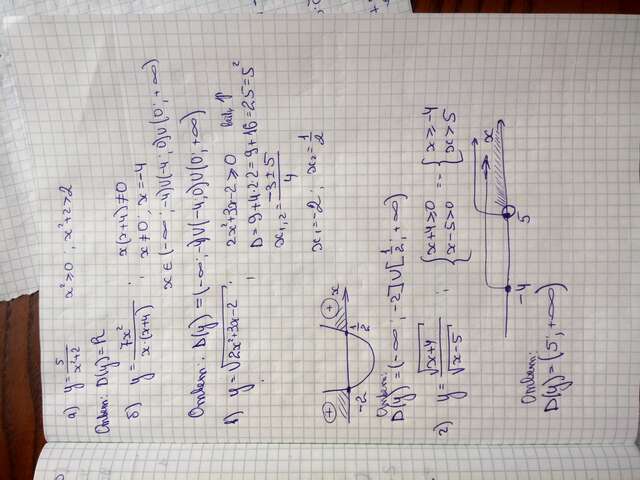 а) y = 5/(x²+2)   x² ≥ 0 , x²+2 > 2
Ответ: D(y) = R
б) y = 7x²/(x·(x+4)) ;   x(x+4) ≠ 0
x ≠ 0 ; x = -4
x ∈ (-∞; -4) ∪ (-4; 0) ∪ (0; +∞)
Ответ: D(y) = (-∞; -4) ∪ (-4; 0) ∪ (0; +∞)
в) y = √(2x²+3x-2) ;   2x²+3x-2 ≥ 0
D = 9+4·2·2 = 9+16 = 25 = 5²
x₁,₂ = (-3±5)/4
x₁ = -2 ; x₂ = 1/2
+ + x
-2 1/2
Ответ:
D(y) = (-∞; -2] ∪ [1/2; +∞)
г) y = √(x+4)/√(x-5) ;   { x+4 ≥ 0   = { x ≥ -4
{ x-5 > 0   { x > 5
x
-4 5
Ответ:
D(y) = (5; +∞)